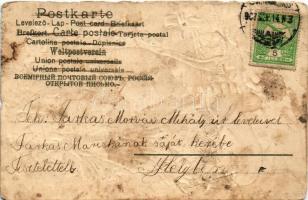 Postkarte
Levelező-Lap - Post card - Briefkaart
Brefkort. Carte postale Tarjeta postal
Cartolina postale. Dopisnice
Weltpostverein
Union postale universelle
Unione postale universale
ВСЕМІРНЫЙ ПОЧТОВЫЙ СОЮЗЪ, РОССІЯ
ОТКРЫТОЕ ПИСЬМО.
Farkas Morvai Mihály úr
Farkas Mariskának saját kezibe
Tisztelettel
Helyben